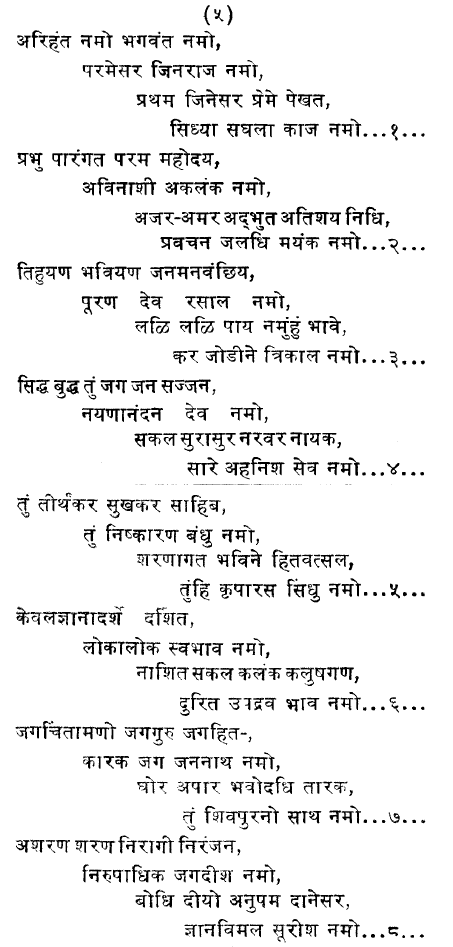 (५)
अरिहंत नमो भगवंत नमो,
परमेसर जिनराज नमो,
प्रथम जिनेसर प्रेमे पेखत,
सिध्या सघला काज नमो...१...
प्रभु पारंगत परम महोदय,
अविनाशी अकलंक नमो,
अजर-अमर अद्भुत अतिशय निधि,
प्रवचन जलधि मयंक नमो...२...
तिहुयण भवियण जनमनवंछिय,
पूरण देव रसाल नमो,
लळि लळि पाय नमुंहुं भावे,
कर जोडीने त्रिकाल नमो...३...
सिद्ध बुद्ध तुं जग जन सज्जन,
नयणानंदन देव नमो,
सकल सुरासुर नरवर नायक,
सारे अहनिश सेव नमो...४...
तुं तीर्थंकर सुखकर साहिब,
तुं निष्कारण बंधु नमो,
शरणागत भविने हितवत्सल,
तुंहि कृपारस सिंधु नमो...५...
केवलज्ञानादर्शे दर्शित,
लोकालोक स्वभाव नमो,
नाशित सकल कलंक कलुषगण,
दुरित उपद्रव भाव नमो...६...
जगचिंतामणो जगगुरु जगहित-,
कारक जग जननाथ नमो,
घोर अपार भवोदधि तारक,
तुं शिवपुरनो साथ नमो...७...
अशरण शरण निरागी निरंजन,
निरुपाधिक जगदीश नमो,
बोधि दीयो अनुपम दानेसर,
ज्ञानविमल सूरीश नमो...८...